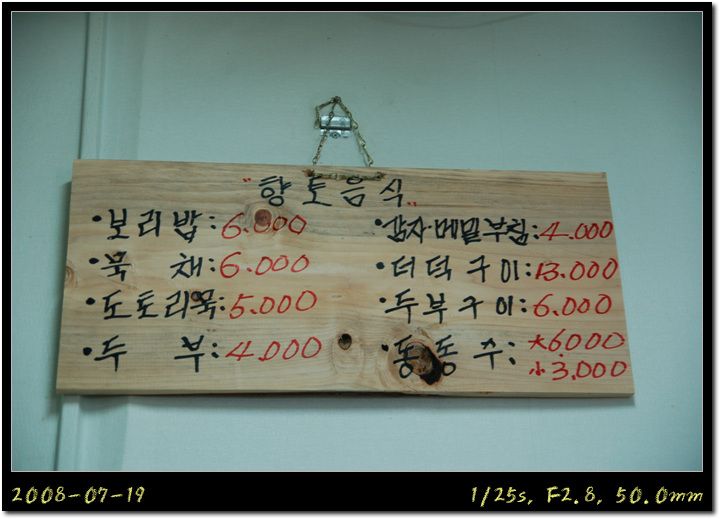 "향토음식"
·보리밥:6.000
·묵 채:6.000
·도토리묵:5.000
·두 부:4.000
·감자·메밀부침:4.000
·더덕구이:13.000
·두부구이:6.000
·동동수:大6.000
小3.000
2008-07-19
1/25s, F2.8, 50.0mm